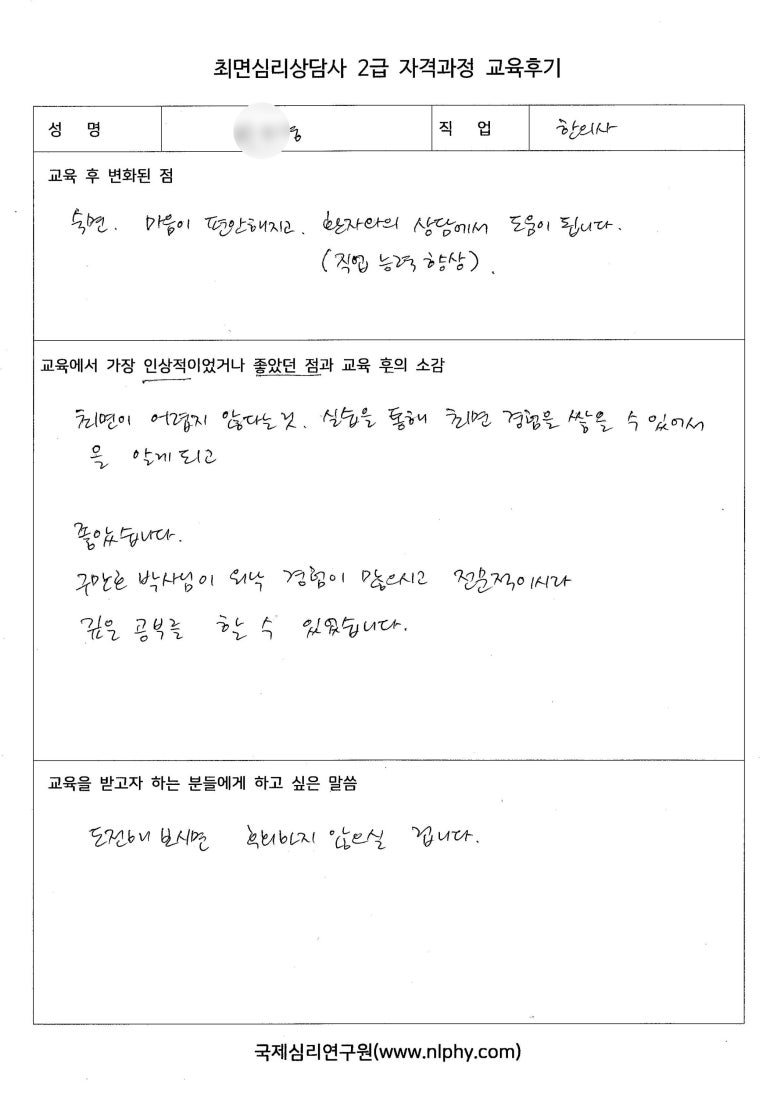 최면심리상담사 2급 자격과정 교육후기
성 명
직 업 한의사
교육 후 변화된 점
숙면. 마음이 편안해지고. 환자와의 상담에서 도움이 됩니다.
(직업 능력 향상).
교육에서 가장 인상적이었거나 좋았던 점과 교육 후의 소감
최면이 어렵지 않다는 것. 실습을 통해 최면 경험을 쌓을 수 있어서
을 알게 되고
좋았습니다.
구만호 박사님이 워낙 경험이 많으시고 전문적이시라
깊은 공부를 할 수 있었습니다.
교육을 받고자 하는 분들에게 하고 싶은 말씀
도전해 보시면 후회하지 않으실 겁니다.
국제심리연구원(www.nlphy.com)